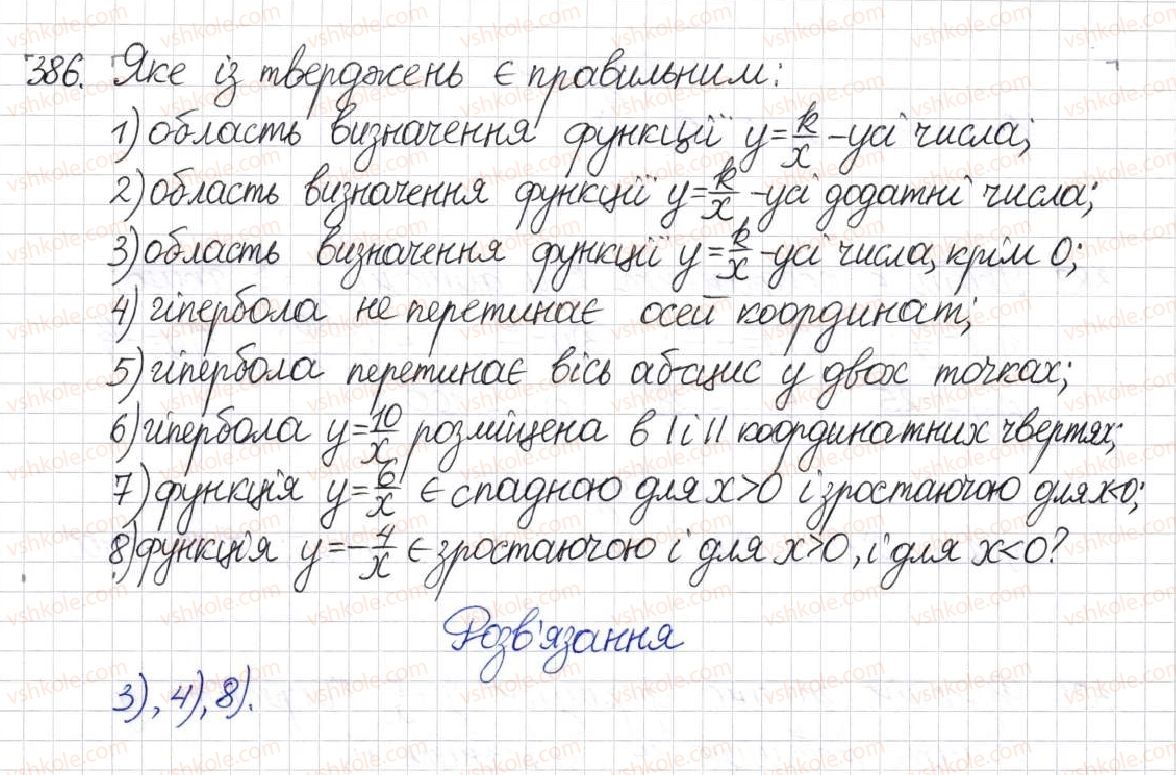 386. Яке із тверджень є правильним:
1) область визначення функції y=k/x - усі числа;
2) область визначення функції y=k/x - усі додатні числа;
3) область визначення функції y=k/x - усі числа, крім 0;
4) гіпербола не перетинає осей координат;
5) гіпербола перетинає вісь абсцис у двох точках;
6) гіпербола y=10/x розміщена в I і II координатних чвертях;
7) функція y=6/x є спадною для x>0 і зростаючою для x<0;
8) функція y=-4/x є зростаючою і для x>0, і для x<0?
Розв'язання
3), 4), 8).